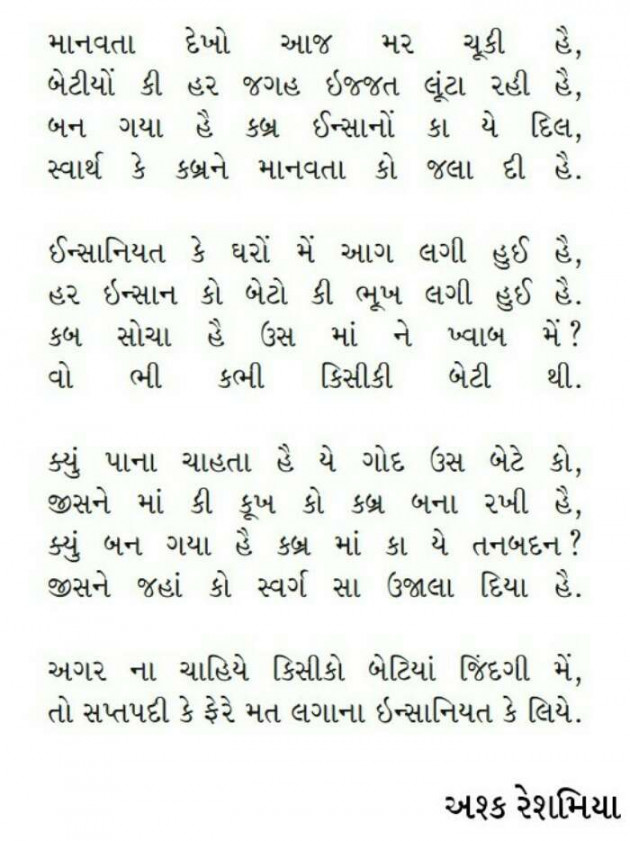 માનવતા દેખો આજ મર ચૂકી હૈ,
બેટીયોં કી હર જગહ ઇજ્જત લૂંટા રહી હૈ,
બન ગયા હૈ કબ્ર ઈન્સાનોં કા યે દિલ,
સ્વાર્થ કે કબ્રને માનવતા કો જલા દી હૈ.
ઈન્સાનિયત કે ઘરોં મેં આગ લગી હુઈ હૈ,
હર ઇન્સાન કો બેટો કી ભૂખ લગી હુઈ હૈ.
કબ સોચા હૈ ઉસ માં ને ખ્વાબ મેં?
વો ભી કભી કિસીકી બેટી થી.
ક્યું પાના ચાહતા હૈ યે ગોદ ઉસ બેટે કો,
જીસને માં કી કૂખ કો કબ્ર બના રખી હૈ,
ક્યું બન ગયા હૈ કબ્ર માં કા યે તનબદન?
જીસને જહાં કો સ્વર્ગ સા ઉજાલા દિયા હૈ.
અગર ના ચાહિયે કિસીકો બેટિયાં જિંદગી મેં,
તો સપ્તપદી કે ફેરે મત લગાના ઇન્સાનિયત કે લિયે.
અશ્ક રેશમિયા